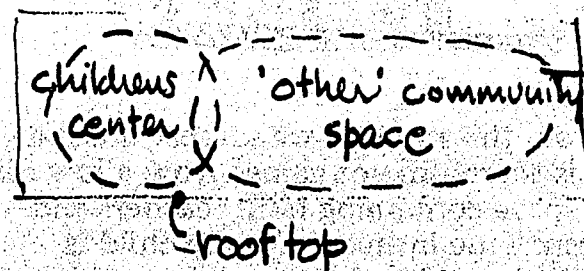 childrens
center
'other' community
space
rooftop